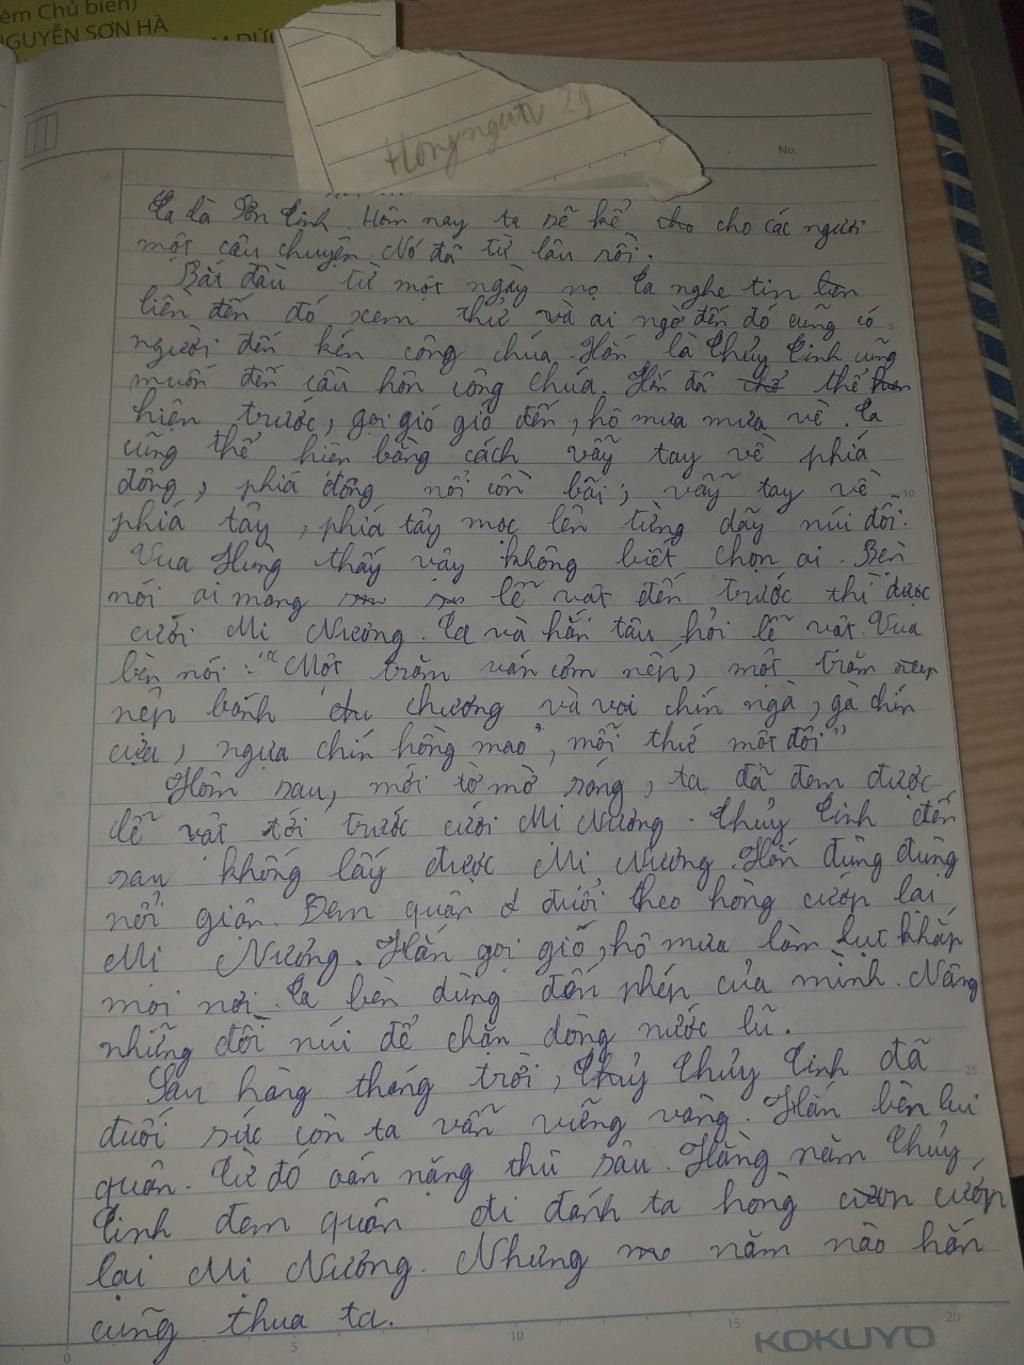 êm Chủ biên)
NGUYỄN SƠN HÀ
Hồng người 29
No.
Ta là Sơn Tinh. Hôm nay ta sẽ kể cho cho các ngươi
một câu chuyện. Nó đã từ lâu rồi.
Bắt đầu từ một ngày nọ Ta nghe tin liền
liền đến đó xem thử và ai ngờ đến đó cũng có
người đến kén công chúa. Hắn là Thủy Tinh cũng
muốn đến cầu hôn công chúa. Hắn đã thể
hiện trước, gọi gió gió đến, hô mưa mưa về. Ta
cũng thể hiện bằng cách vẫy tay về phía
đông, phía đông nổi cồn bãi; vẫy tay về
phía tây, phía tây mọc lên từng dãy núi đồi.
Vua Hùng thấy vậy không biết chọn ai. Bèn
nói ai mang lễ vật đến trước thì được
cưới Mi Nương. Ta và hắn tâu hỏi lễ vật. Vua
bèn nói: "Một trăm ván cơm nếp, một trăm nẹp
nệp bánh chương và voi chín ngà, gà chín
cựa, ngựa chín hồng mao", mỗi thứ một đôi"
Hôm sau, mới tờ mờ sáng, ta đã đem được
lễ vật tới trước cưới Mi Nương. Thủy Tinh đến
sau không lấy được Mi Nương. Hắn đùng đùng
nổi giận. Đem quân đ đuổi theo hòng cướp lại
Mi Nương. Hắn gọi gió, hô mưa làm lụt khắp
mọi nơi. Ta bèn dùng đến phép của mình. Nâng
những đồi núi để chặn dòng nước lũ.
Sau hàng tháng trời, Thủy Thủy Tinh đã
đuối sức còn ta vẫn viễng vàng. Hắn bèn lui
quân. Từ đó oán nặng thù sâu. Hằng năm Thủy
Tinh đem quân đi đánh ta hòng cướp
lại Mị Nương. Nhưng năm nào hắn
cũng thua ta.
KOKUYO